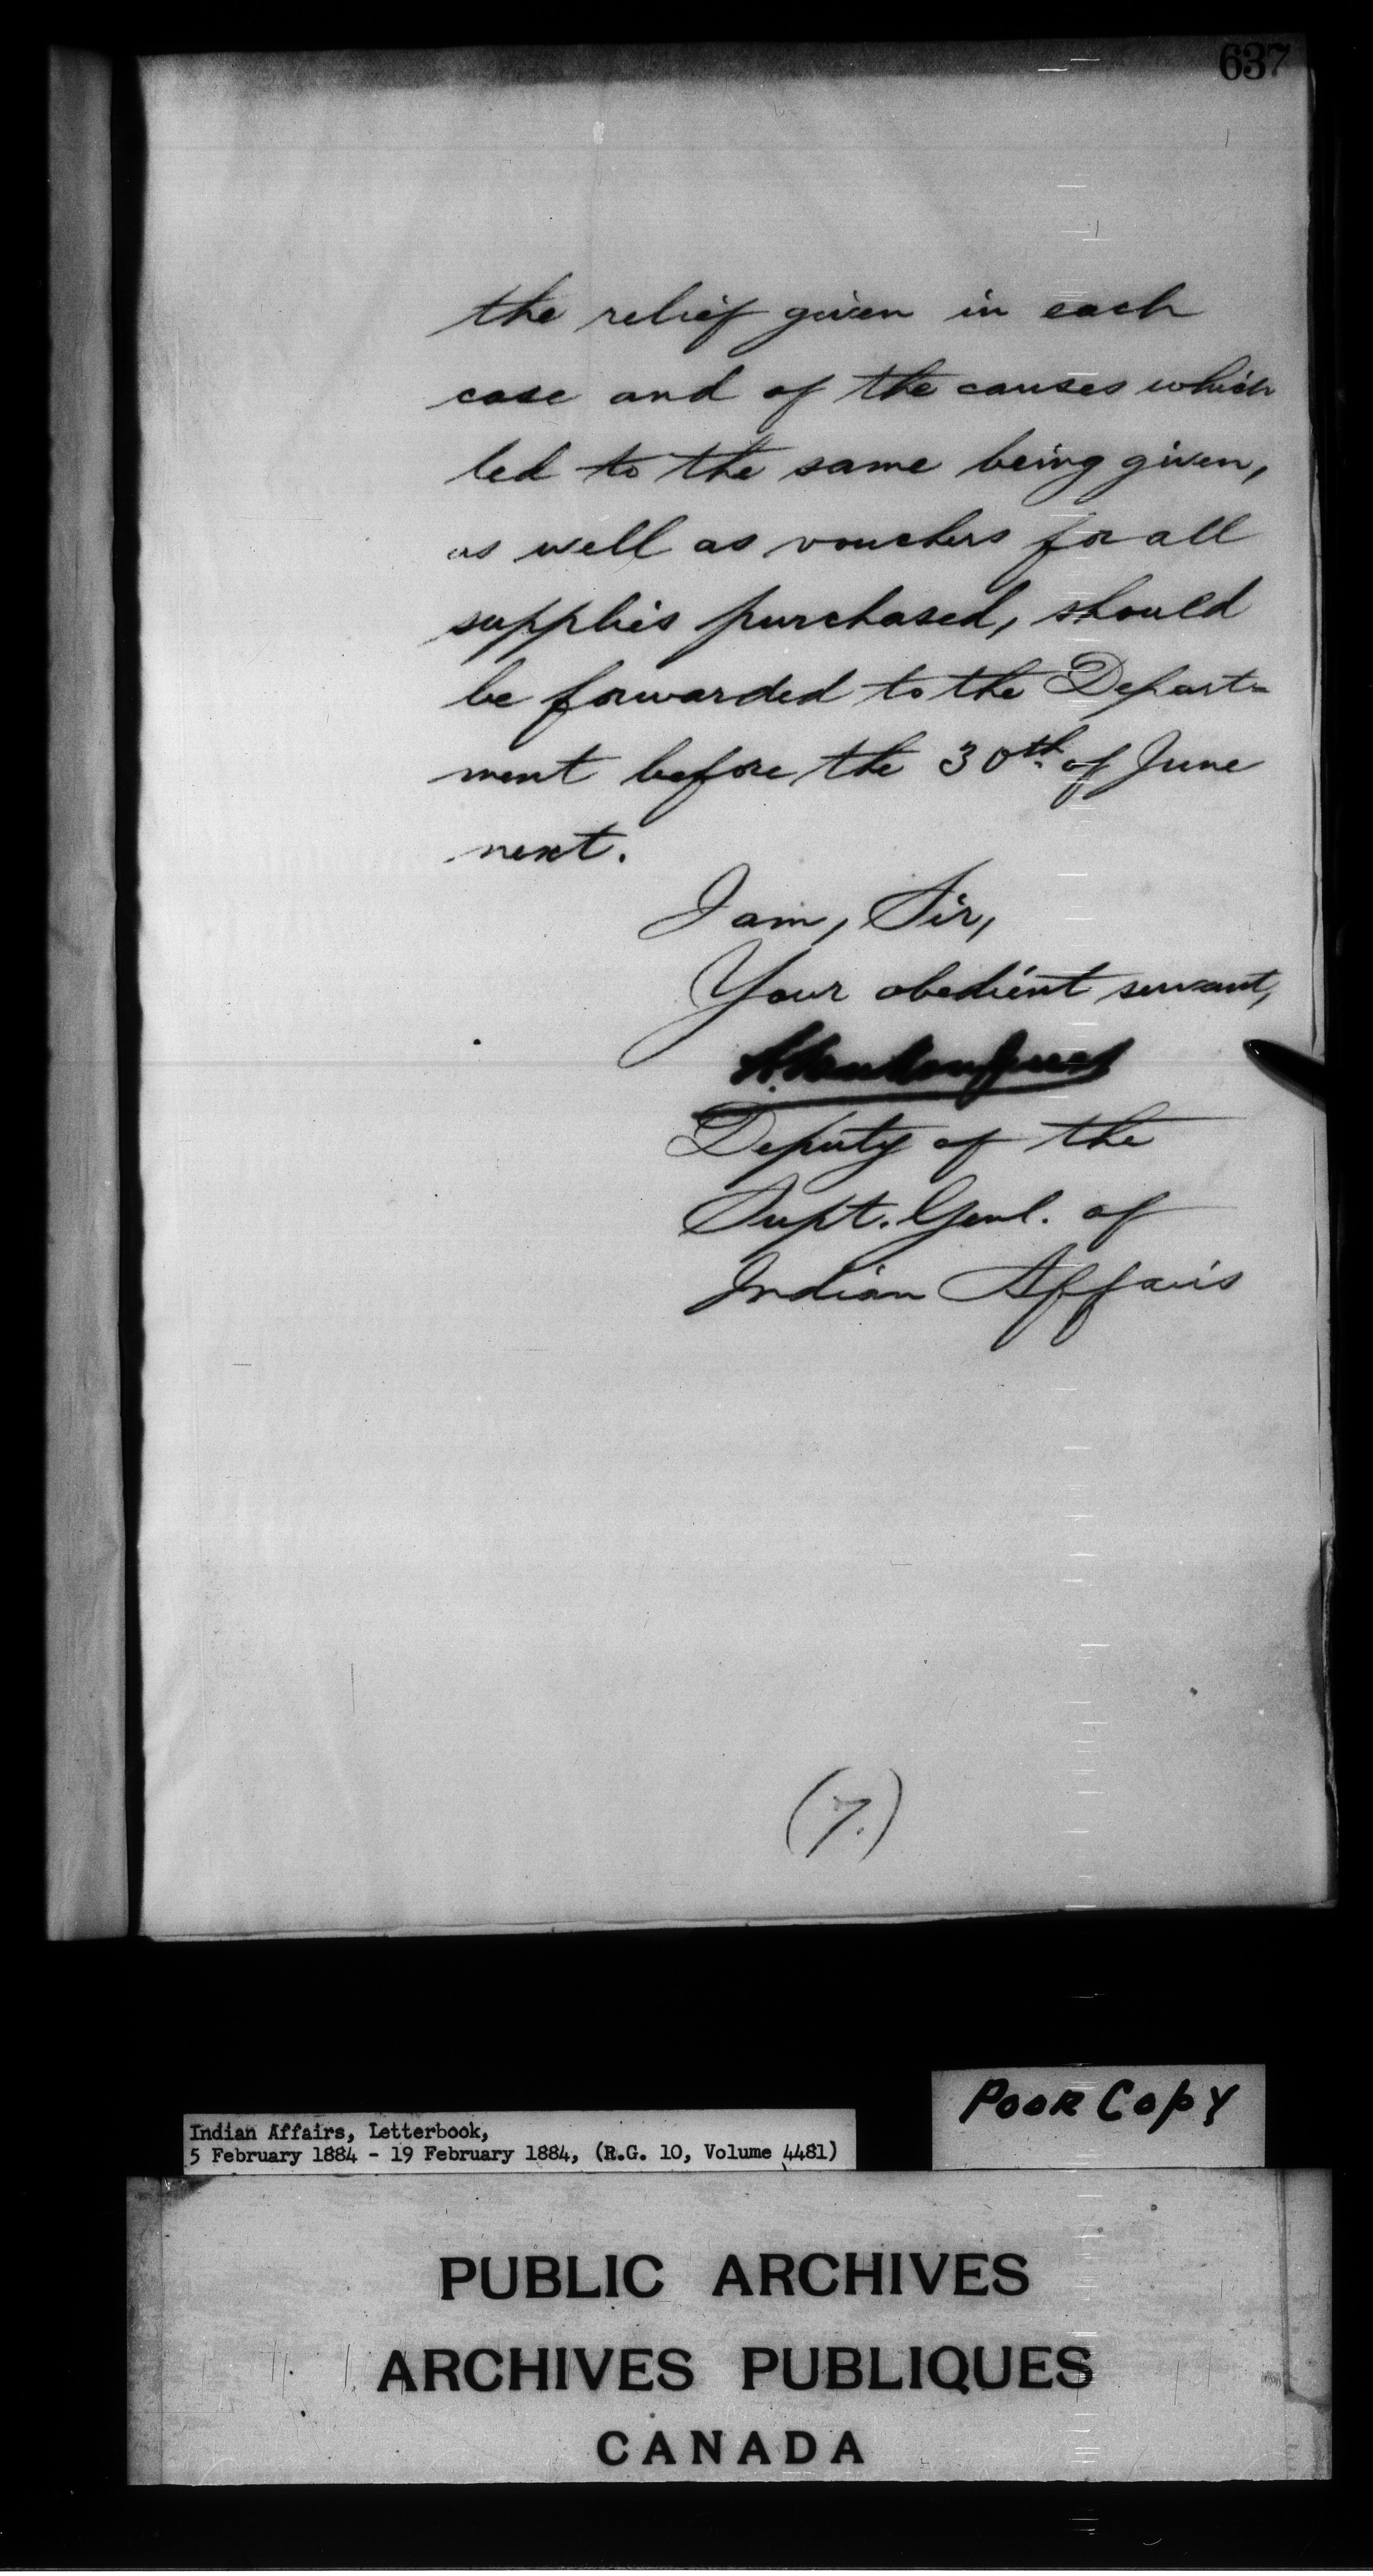 637
the relief given in each
case and of the causes which
led to the same being given,
as well as vouchers for all
supplies purchased, should
be forwarded to the Depart-
ment before the 30th of June
next.
I am, Sir,
Your obedient servant,
Deputy of the
Supt. Genl. of
Indian Affairs
(7.)
POOR COPY
Indian Affairs, Letterbook,
5 February 1884 - 19 February 1884, (R.G. 10, Volume 4481)
PUBLIC ARCHIVES
ARCHIVES PUBLIQUES
CANADA